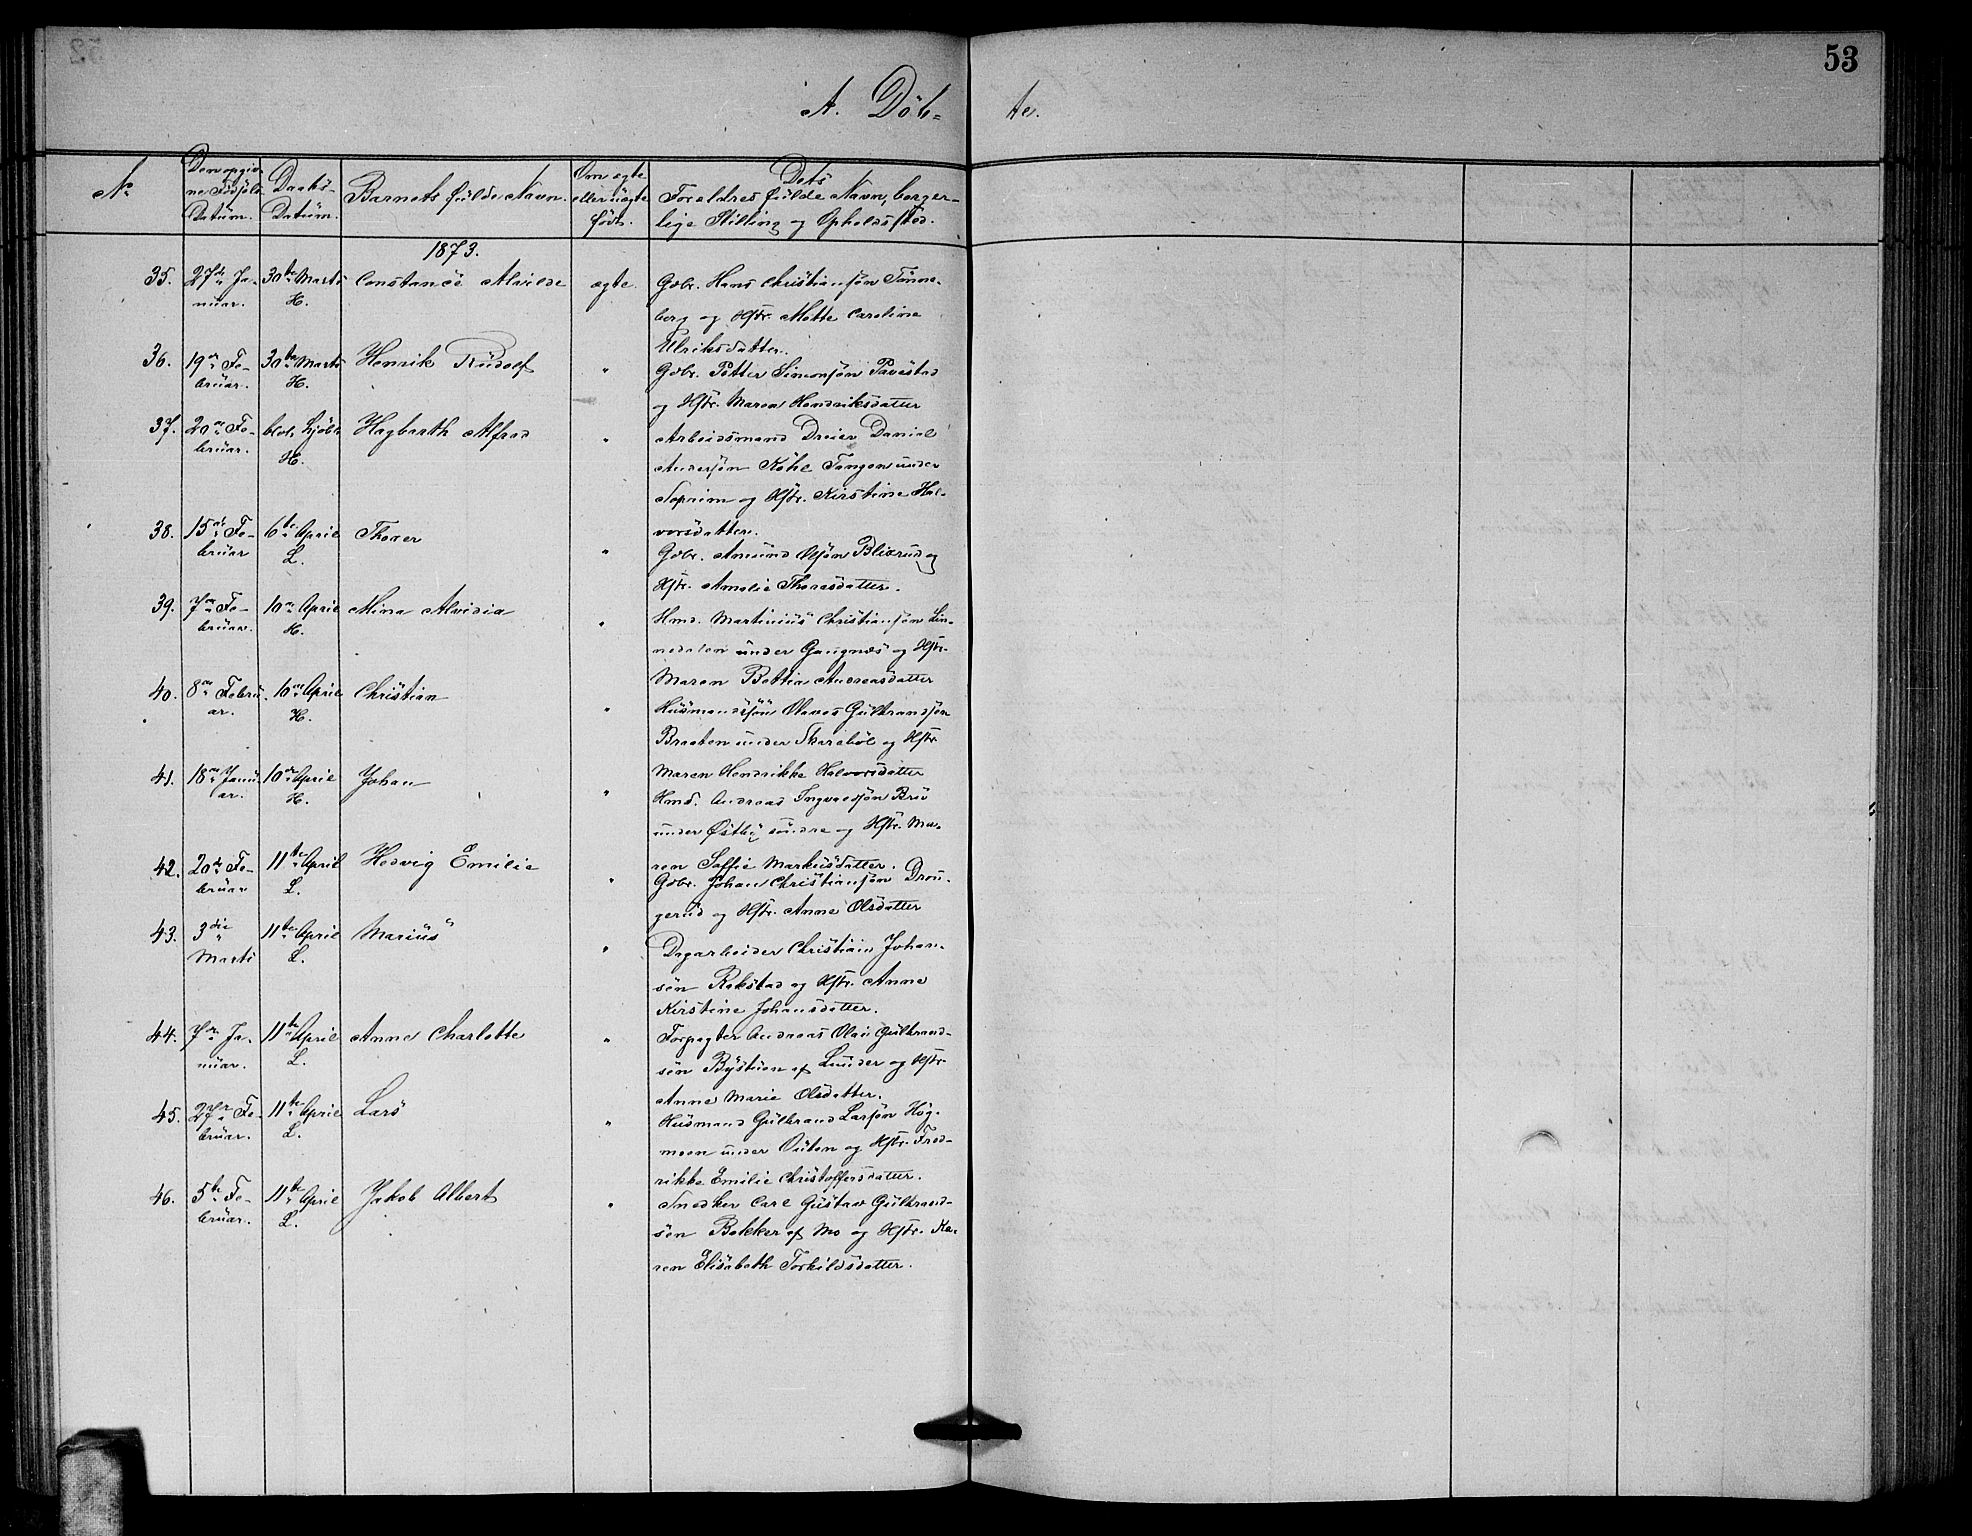 53
A. Döb- te.
No
Den opgiv-
ne Födsels-
Datum.
Daabs-
Datum.
Barnets fulde Navn.
Om ægte
eller uægte
født.
Dets
Forældres fulde Navn, borger-
lige Stilling og Opholdssted.
1873.
35. 27de Ja-
nuar.
30te Marts
H.
Constance Alvilde
ægte.
Gdbr. Hans Christiansøn Tønne-
berg og Hstr. Mette Caroline
Ulriksdatter.
36. 19de Fe-
bruar.
30te Marts
H.
Henrik Rudolf
"
Gdbr. Petter Simonsøn
og Hstr. Maren Hendriksdatter
37. 20de Fe-
bruar.
H.
Hagbarth Alfred
"
Arbeidsmand Dreier Daniel
Andersøn Tangen under
og Hstr. Kirstine Hal-
vorsdatter.
38. 15de Fe-
bruar
6te April
L.
Thorer
"
Gdbr. Amund Olsøn Blixrud og
Hstr. Amalie Thorasdatter.
39. 7de Fe-
bruar.
10de April
H.
Mina Alvidia
"
Hmd. Martinius Christiansøn Lin-
nedalen under Gaugnæs og Hstr.
Maren Bettia Andreasdatter
40. 8de Febru-
ar.
10de April
H.
Christian
"
Husmandssøn Olaves Gulbrandsøn
Braaten under Skarebøl og Hstr
Maren Hendrikke Halvorsdatter
41. 18de Janu-
ar.
10de April
H.
Johan
"
Hmd. Andreas Ingvalsøn Bru
under Østby søndre og Hstr. Ma-
ren Soffie Markusdatter.
42. 20de Fe-
bruar
11te April
L.
Hedvig Emilie
"
Gdbr. Johan Christiansøn Dron-
gerud og Hstr. Anne Olsdatter
43. 3die
Marts
11te April
L.
Marius
"
Dagarbeider Christian Johan-
søn Rakstad og Hstr. Anne
Kirstine Johansdatter.
44. 7de Ja-
nuar.
11te April
L.
Anne Charlotte
"
Forpagter Andreas Olai Gulbrand-
søn Bystuen af Lunder og Hstr.
Anne Marie Olsdatter.
45. 27de Fe-
bruar.
11te April
L.
Lars
"
Husmand Gulbrand Larsøn Høg-
moen under Outen og Hstr. Fred-
rikke Emilie Christoffersdatter.
46. 5te Fe-
bruar.
11te April
L.
Jakob Albert
"
Snedker Carl Gustav Gulbrand-
søn Bakker af Mo og Hstr. Ka-
ren Elisabeth Torkildsdatter.